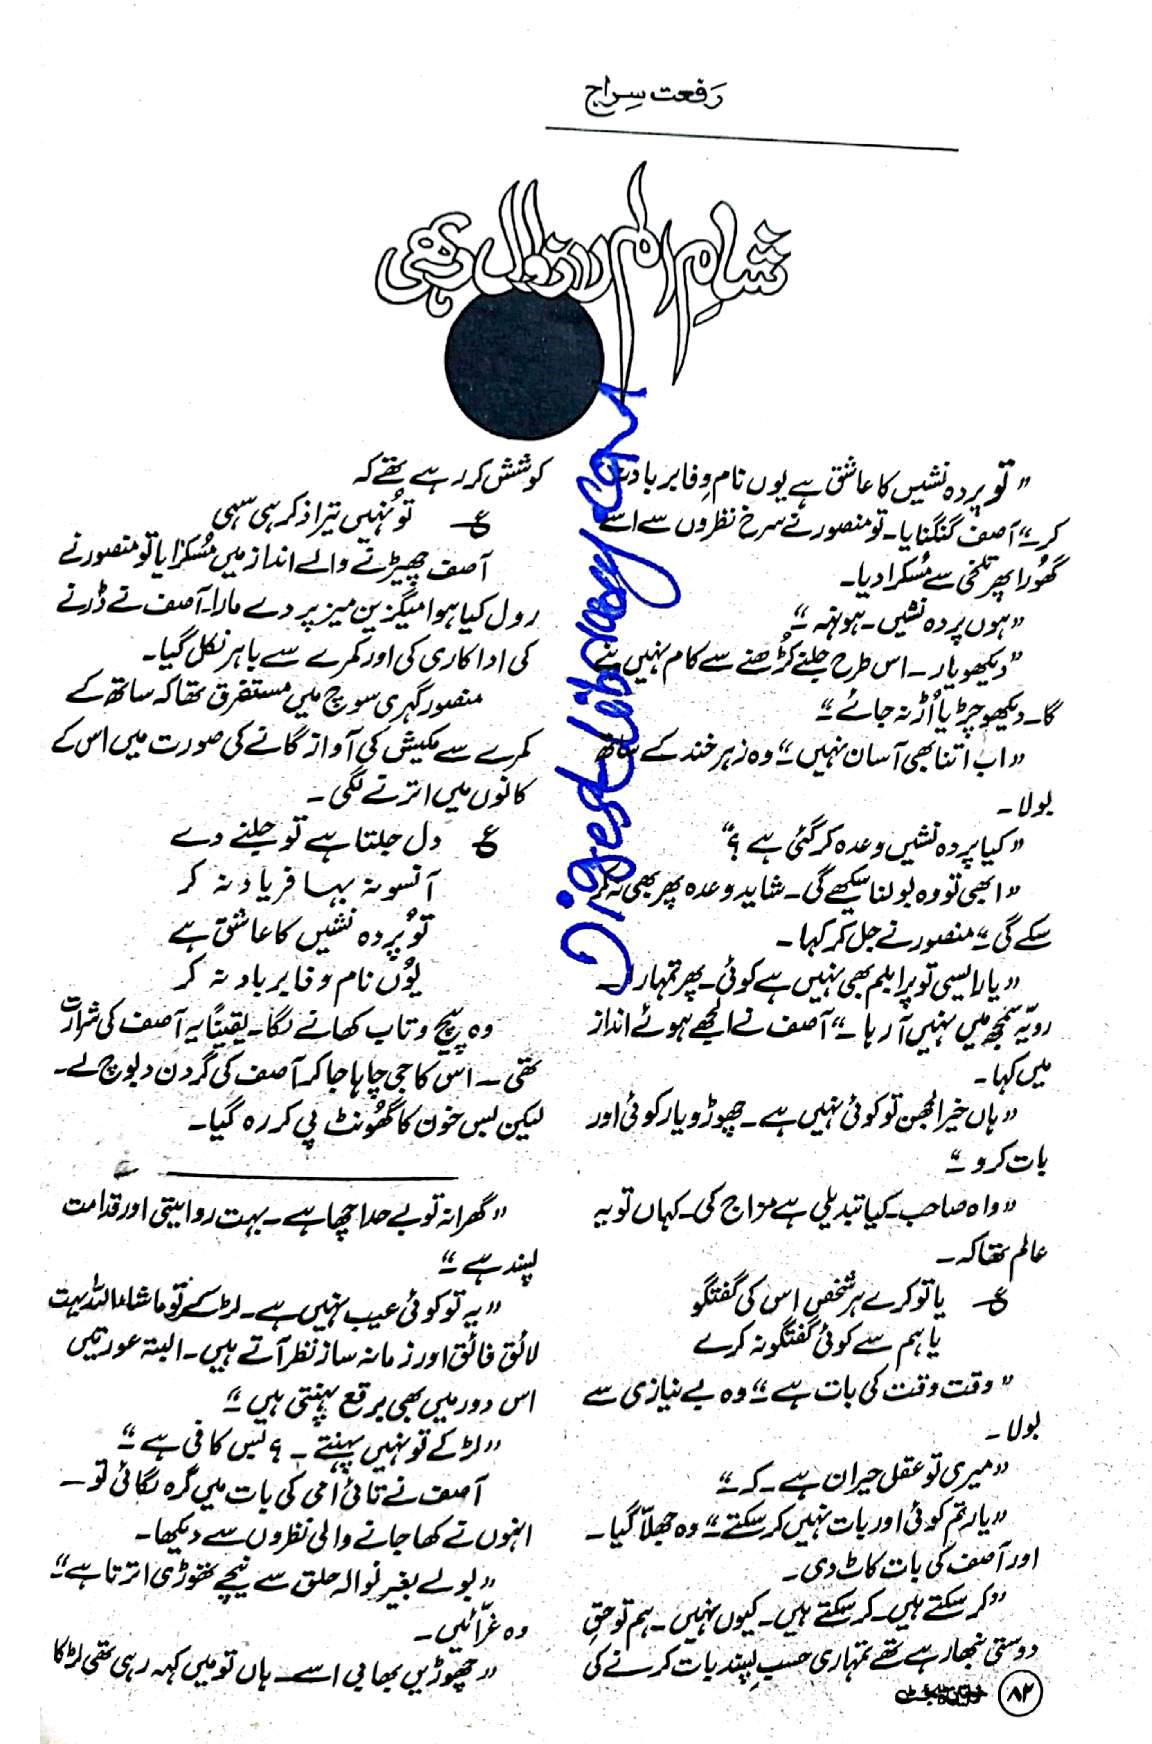 رفعت سراج
شامِ الم زوال بھی
"تو پردہ نشیں کا عاشق ہے یوں نامِ وفا برباد نہ
کر" آصف گنگنایا۔ تو منصور نے سرخ نظروں سے اسے
گھورا پھر تلخی سے مُسکرا دیا۔
"ہوں پردہ نشیں۔ ہونہہ"
"دیکھو یار۔ اس طرح جلنے کُڑھنے سے کام نہیں بنے
گا۔ دیکھو چڑیا اُڑ نہ جائے"
"اب اتنا بھی آسان نہیں" وہ زہر خند کے ساتھ
بولا۔
"کیا پردہ نشیں وعدہ کر گئی ہے؟"
"ابھی تو وہ بولنا سیکھے گی۔ شاید وعدہ پھر بھی نہ کر
سکے گی" منصور نے جل کر کہا۔
"یار ایسی تو پرابلم بھی نہیں ہے کوئی۔ پھر تمہارا
رویّہ سمجھ میں نہیں آ رہا۔" آصف نے الجھے ہوئے انداز
میں کہا۔
"ہاں خیر الجھن تو کوئی نہیں ہے۔ چھوڑو یار کوئی اور
بات کرو"
"واہ صاحب کیا تبدیلی ہے مزاج کی۔ کہاں تو یہ
عالم تھا کہ۔
؏ یا تو کرے ہر شخص اس کی گفتگو
یا ہم سے کوئی گفتگو نہ کرے
"وقت وقت کی بات ہے" وہ بے نیازی سے
بولا۔
"میری تو عقل حیران ہے۔ کہ"
"یار تم کوئی اور بات نہیں کر سکتے" وہ جھلّا گیا۔
اور آصف کی بات کاٹ دی۔
"کر سکتے ہیں۔ کر سکتے ہیں۔ کیوں نہیں۔ ہم تو حقِ
دوستی نبھا رہے تھے تمہاری حسبِ پسند بات کرنے کی
کوشش کر رہے تھے کہ
؏ تو نہیں تیرا ذکر ہی سہی
آصف چھیڑنے والے انداز میں مُسکرایا تو منصور نے
رول کیا ہوا میگزین میز پر دے مارا۔ آصف نے ڈرنے
کی اداکاری کی اور کمرے سے باہر نکل گیا۔
منصور گہری سوچ میں مستغرق تھا کہ ساتھ کے
کمرے سے مکیش کی آواز گانے کی صورت میں اس کے
کانوں میں اترنے لگی۔
؏ دل جلتا ہے تو جلنے دے
آنسو نہ بہا فریاد نہ کر
تو پردہ نشیں کا عاشق ہے
یوں نام وفا برباد نہ کر
وہ پیچ و تاب کھانے لگا۔ یقیناً یہ آصف کی شرارت
تھی۔ اس کا جی چاہا جا کر آصف کی گردن دبوچ لے۔
لیکن بس خون کا گھونٹ پی کر رہ گیا۔
"گھرانہ تو بے حد اچھا ہے۔ بہت روایتی اور قدامت
پسند ہے"
"یہ تو کوئی عیب نہیں ہے۔ لڑکے تو ماشاءاللہ بہت
لائق فائق اور زمانہ ساز نظر آتے ہیں۔ البتہ عورتیں
اس دور میں بھی برقع پہنتی ہیں"
"لڑکے تو نہیں پہنتے۔؟ بس کافی ہے"
آصف نے تائی امی کی بات میں گرہ لگائی تو۔
انہوں نے کھا جانے والی نظروں سے دیکھا۔
"بولے بغیر نوالہ حلق سے نیچے تھوڑی اترتا ہے"
وہ غرّائیں۔
"چھوڑیں بھابی اسے۔ ہاں تو میں کہہ رہی تھی لڑکا
۸۲ خواتین ڈائجسٹ
Digestlibrary.com